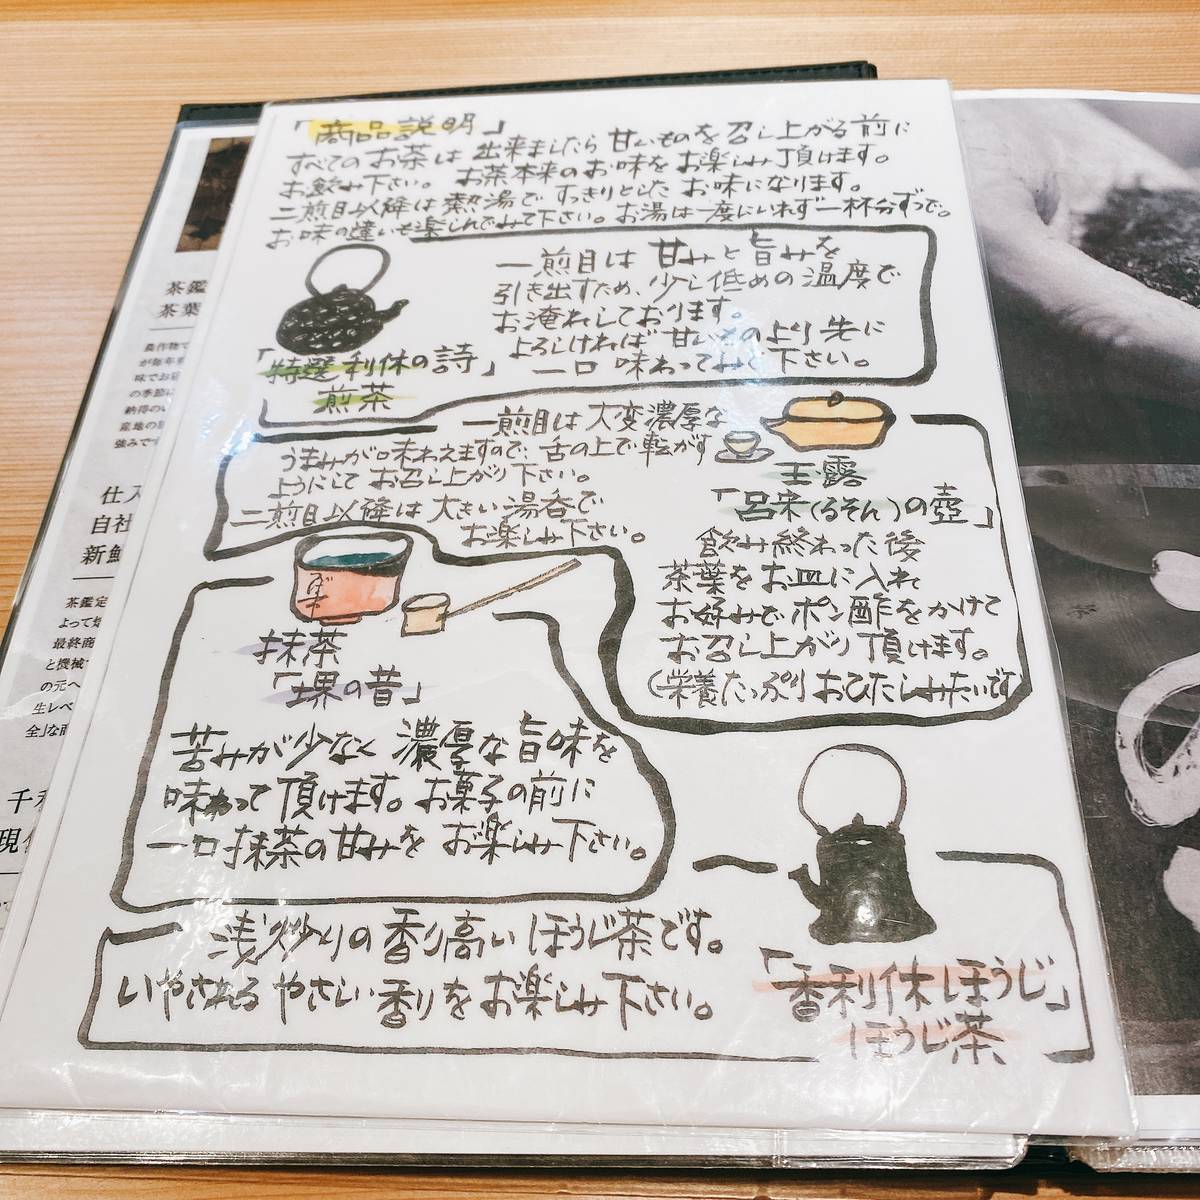 「商品説明」
すべてのお茶は出来ましたら甘いものを召し上がる前に
お飲み下さい。お茶本来のお味をお楽しみ頂けます。
二煎目以降は熱湯ですっきりとしたお味になります。
お味の違いも楽しんでみて下さい。お湯は一度にいれず一杯分ずつで。
一煎目は甘みと旨みを
引き出すため、少し低めの温度で
お淹れしております。
よろしければ甘いものより先に
一口味わってみて下さい。
「特選利休の詩」
煎茶
一煎目は大変濃厚な
うまみが味わえますので、舌の上で転がす
ようにしてお召し上がり下さい。
二煎目以降は大きい湯呑で
お楽しみ下さい。
玉露
「呂宋(るそん)の壺」
飲み終わった後
茶葉をお皿に入れ
お好みでポン酢をかけて
お召し上がり頂けます。
(栄養たっぷりおひたしみたいです)
抹茶
「堺の昔」
苦みが少なく濃厚な旨味を
味わって頂けます。お菓子の前に
一口抹茶の甘みをお楽しみ下さい。
浅炒りの香り高いほうじ茶です。
いやされるやさしい香りをお楽しみ下さい。
「香利休ほうじ」
ほうじ茶
茶鑑
茶葉
農作物で
が毎年
味でお
の季節に
納得の
産地の
強みで
仕入
自社
新鮮
茶鑑定
よって
最終商
と機械
の元へ
生レベ
全」な商
千利
現代